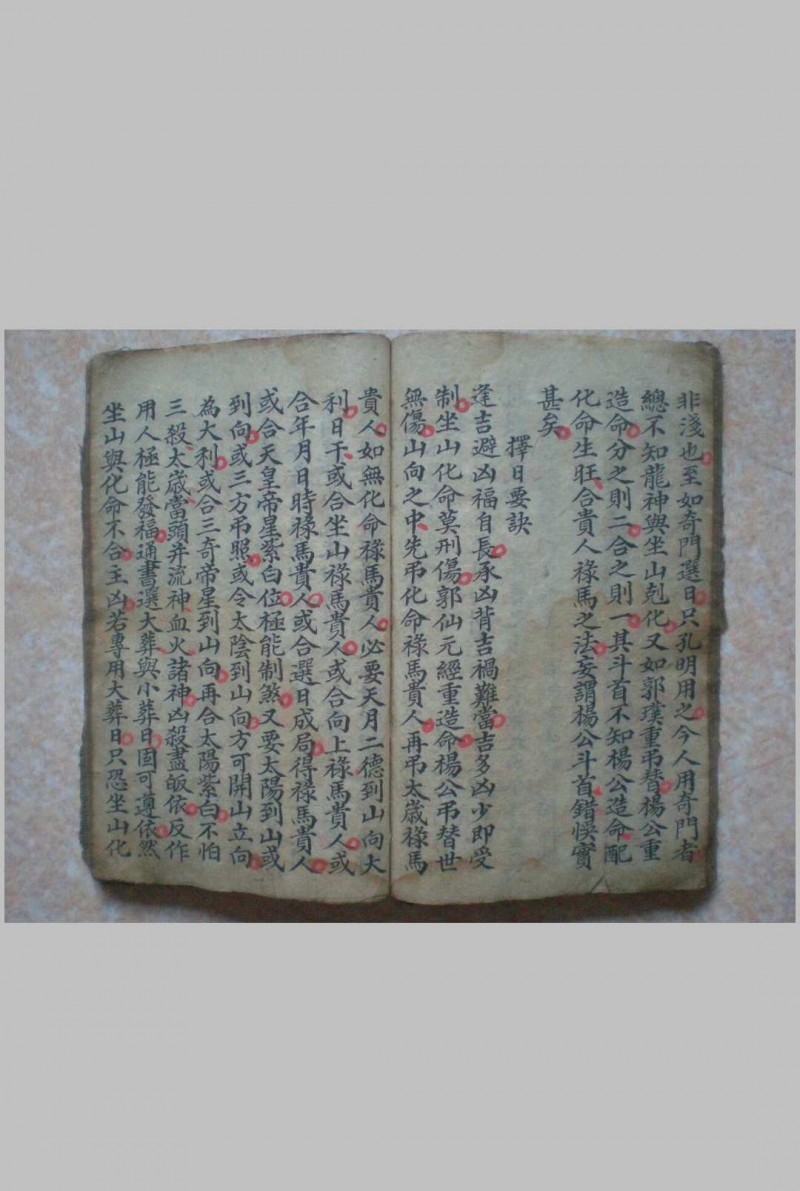 非淺也至如奇門選日只孔明用之今人用奇門者
總不知龍神與坐山剋化又如郭璞重弔替楊公重
造命分之則二合之則一其斗首不知楊公造命配
化命生旺合貴人祿馬之法妄謂楊公斗首錯悞實
甚矣
擇日要訣
逢吉避凶福自長承凶背吉禍難當吉多凶少即受
制坐山化命莫刑傷郭仙元經重造命楊公弔替世
無傷山向之中先弔化命祿馬貴人再弔太歲祿馬
貴人如無化命祿馬貴人必要天月二德到山向大
利日干或合坐山祿馬貴人或合向上祿馬貴人或
合年月日時祿馬貴人或合選日成局得祿馬貴人
或合天皇帝星紫白位極能制煞又要太陽到山或
到向或三方弔照或令太陰到山向方可開山立向
為大利或合三奇帝星到山向再合太陽紫白不怕
三殺太歲當頭并流神血火諸神凶殺盡皈依反作
用人極能發福通書選大葬與小葬日固可遵依然
坐山與化命不合主凶若專用大葬日只恐坐山化